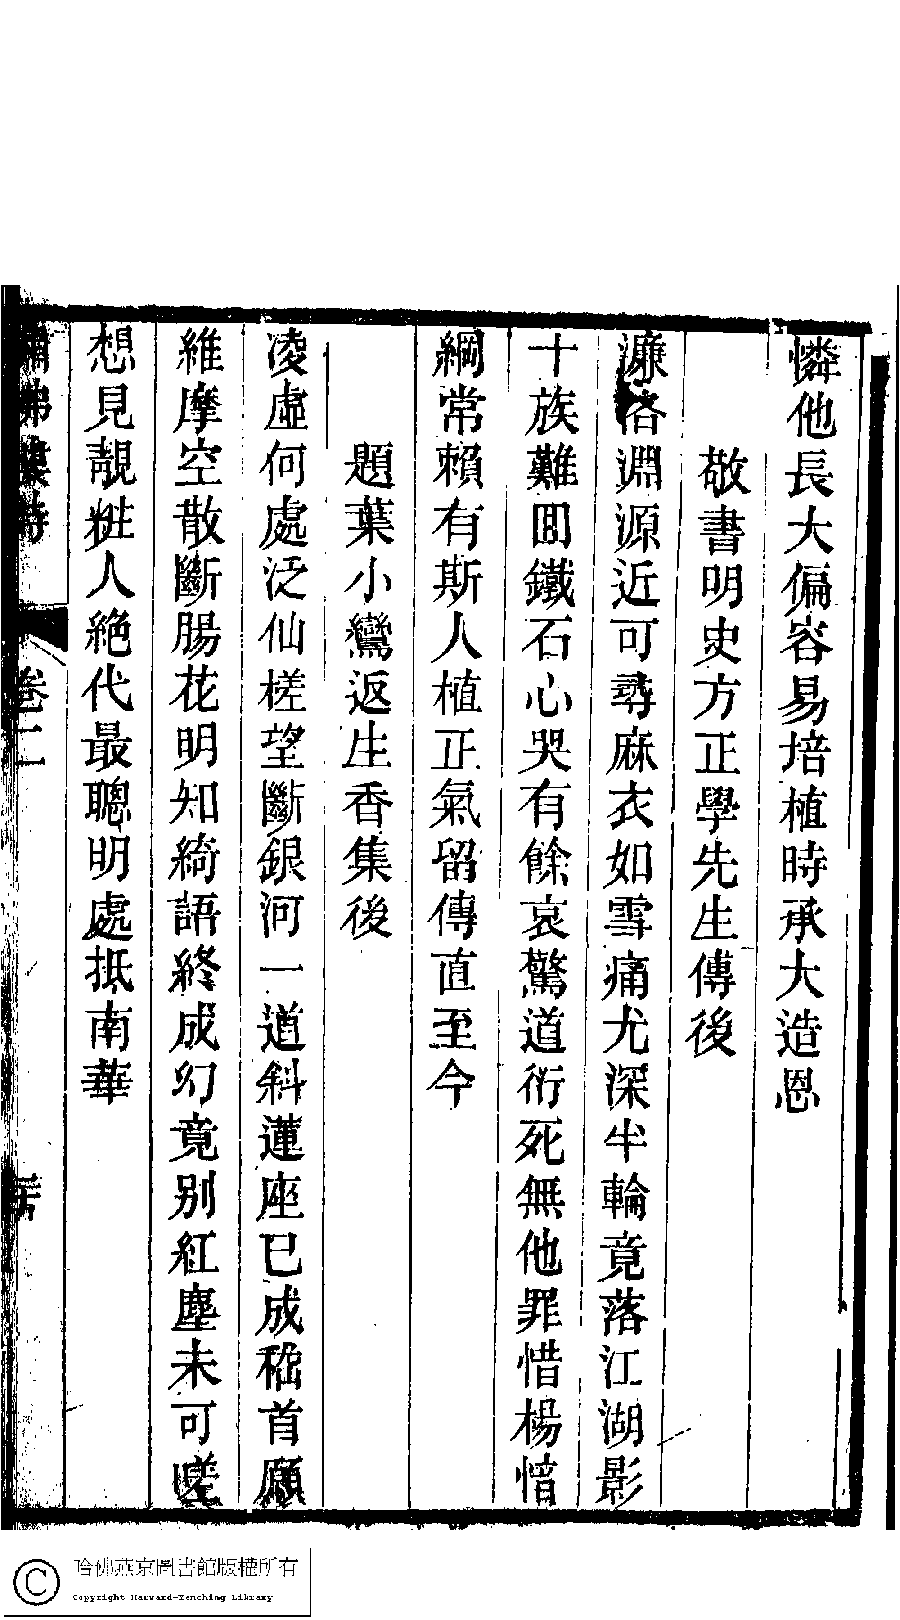 憐他長大偏容易培植時承大造恩
敬書明史方正學先生傳後
濂洛淵源近可尋麻衣如雪痛尤深半輪竟落江湖影
十族難回鐵石心哭有餘哀驚道衍死無他罪惜楊愔
綱常賴有斯人植正氣留傳直至今
題葉小鸞返生香集後
凌虛何處泛仙槎望斷銀河一道斜蓮座已成稽首願
維摩空散斷腸花明知綺語終成幻竟别紅塵未可嗟
想見靚粧人絕代最聰明處抵南華
卷二
哈佛燕京圖書館版權所有
Copyright Harvard-Yenching Library